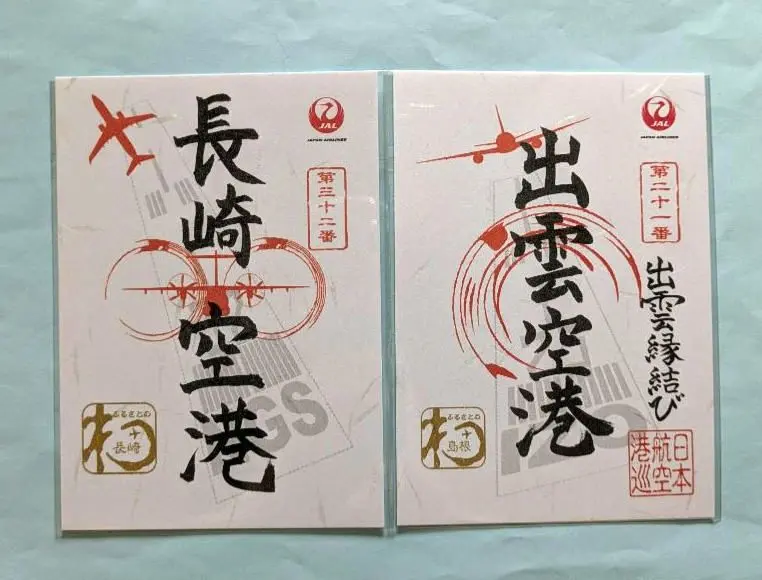 長崎空港
JAL
JAPAN AIRLINES
第三十二番
GS
ふるさとの
長崎
出雲空港
JAL
JAPAN AIRLINES
第二十一番
出雲縁結び
ふるさとの
島根
日本
航空
港巡